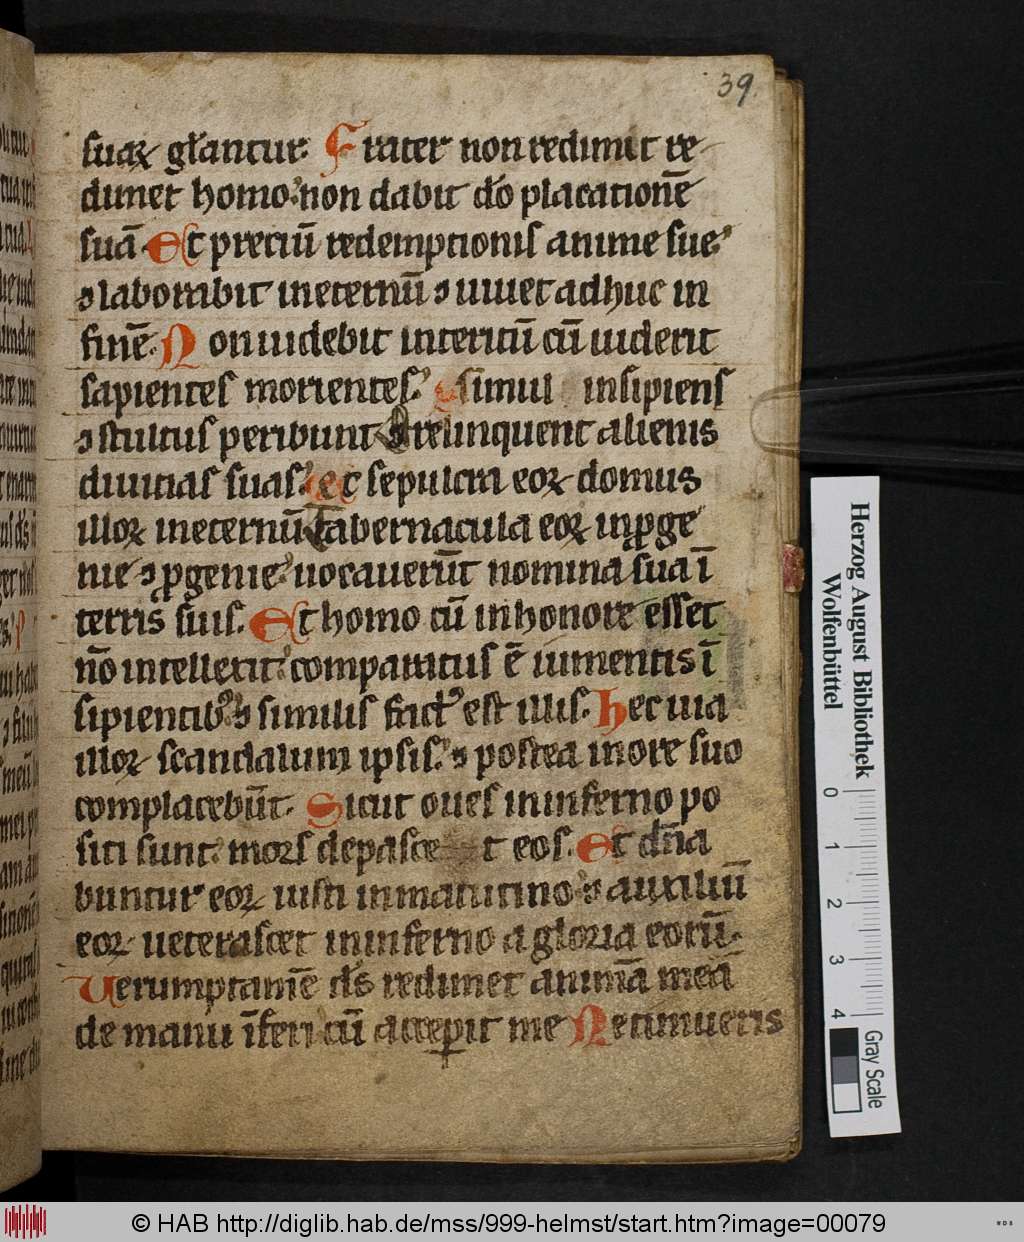 39
suaꝝ gl̄antur. Frater non redimit re
dimet homo: non dabit dō placationē
suā. Et preciū redemptionis anime sue:
⁊ laborabit ineternū ⁊ uiuet adhuc in
finē. Non uidebit interitū cū uiderit
sapientes morientes: simul insipiens
⁊ stultus peribunt. ⁊ relinquent alienis
diuitias suas: et sepulcra eoꝝ domus
illoꝝ ineternū Tabernacula eoꝝ inꝓge
nie ⁊ ꝓgenie: uocauerūt nomina sua ī
terris suis. Et homo cū inhonore esset
nō intellexit: comparatus ē iumentis ī
sipientibꝰ ⁊ similis factꝰ est illis. Hec uia
illoꝝ scandalum ipsis: ⁊ postea inore suo
complacebūt. Sicut oues ininferno po
siti sunt: mors depasce t eos. Et dn̄a
buntur eoꝝ iusti inmatutino: ⁊ auxiliū
eoꝝ ueterascet ininferno a gloria eorū.
Uerumptamē ds̄ redimet animā meā
de manu īferi cū acceꝑit me Ne timueris
Herzog August Bibliothek
Wolfenbüttel
0 1 2 3 4
Gray Scale
© HAB http://diglib.hab.de/mss/999-helmst/start.htm?image=00079